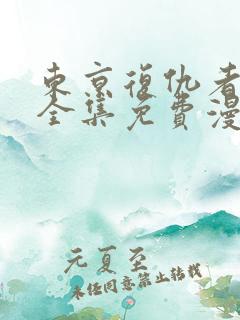 东京復仇者
全集免費漫
元夏至
未经同意禁止转载